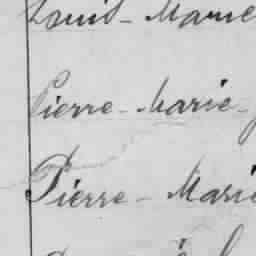 Louis - Marie
Pierre - Marie -
Pierre - Marie